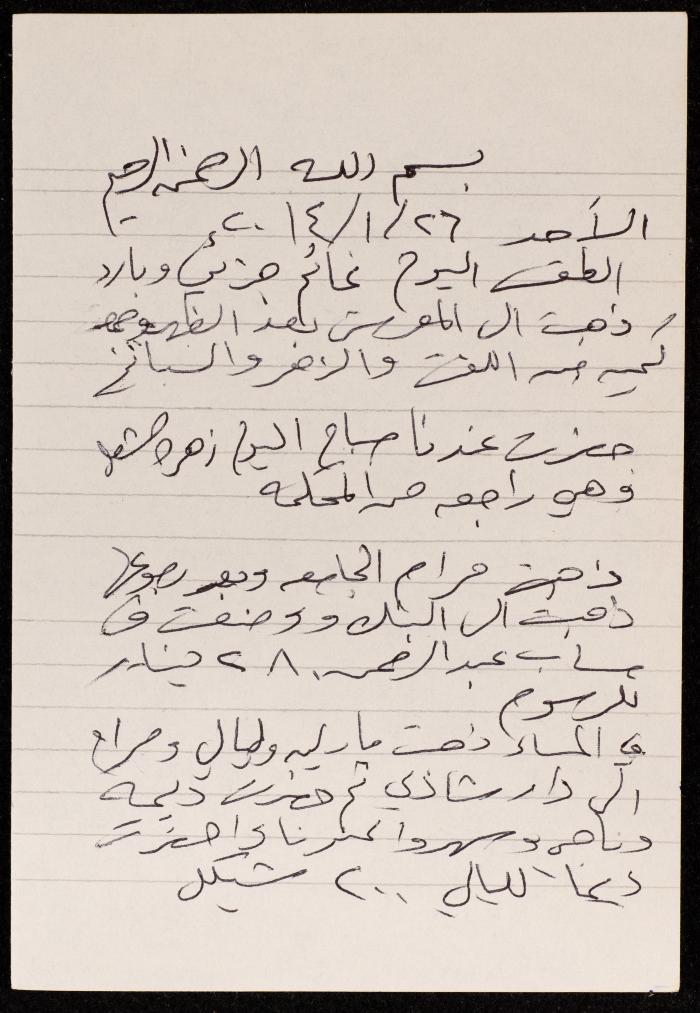 بسم الله الرحمن الرحيم
الأحد ٢٦/١/٢٠١٤م
الطقس اليوم غائم جزئي وبارد
ذهبت الى المغرس بعد الظهر
كميه من اللفت والجزر والسبانخ
حضرت عندنا صباح اليوم زهره
وهي راجعه من المحكمه
ذهبت مرام الجامعه وبعد رجوعها
ذهبت الى البنك ووضعت في
حساب عبد الرحمن ٢٨٠ دينار
للرسوم
في المساء ذهبت ماريه وليالي ومرام
الى دار شاذي ثم حضرت ديمه
وناصر وسهروا عندنا واحضرت
ديما لليالي ٢٠٠ شيكل